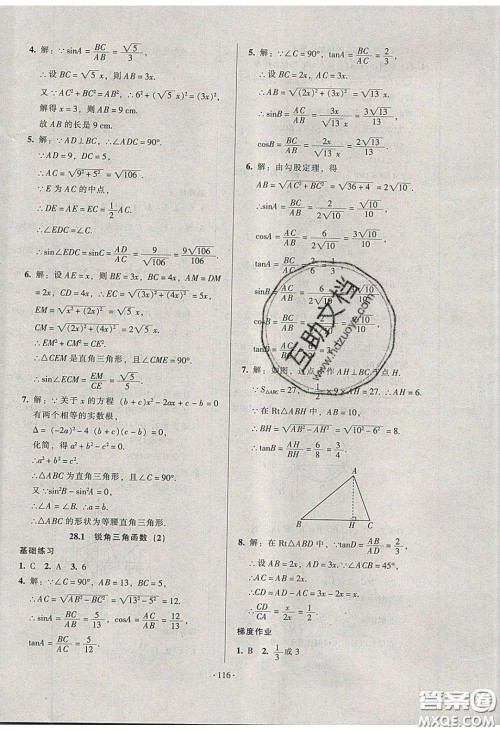 4. 解：∵sinA = BC/AB = √5/3，
∴设 BC=√5 x，则 AB=3x.
又∵AC²+BC²=AB²，∴6²+(√5 x)²=(3x)²，
解得 x=3，∴AB=9 cm.
故 AB 的长是 9 cm.
5. 解：∵AD⊥BC，∴∠ADC=90°.
∵AD=9，DC=5，
∴AC=√(9²+5²)=√106.
∵E 为 AC 的中点，
∴DE=AE=EC=1/2 AC，
∴∠EDC=∠C.
∴sin∠EDC=sinC=AD/AC=9/√106=9√106/106.
6. 解：设 AE=x，则 BE=3x，BC=4x，AM=DM
=2x，CD=4x，∴EC=√((3x)²+(4x)²)=5x，
EM=√(x²+(2x)²)=√5 x，
CM=√((2x)²+(4x)²)=2√5 x，
∴EM²+CM²=CE².
∴△CEM 是直角三角形，且∠CME=90°，
∴sin∠ECM=EM/CE=√5/5.
7. 解：∵关于 x 的方程 (b+c)x²-2ax+c-b=0
有两个相等的实数根，
∴(-2a)²-4(b+c)(c-b)=0.
化简，得 a²+b²-c²=0.
∴a²+b²=c².
∴△ABC 为直角三角形，且∠C=90°.
又∵sin²B-sin²A=0，
∴sinB=sinA，∴∠B=∠A.
∴△ABC 的形状为等腰直角三角形.
28.1 锐角三角函数（2）
基础练习
1. C 2. A 3. 6
4. 解：∵∠C=90°，AB=13，BC=5，
∴AC=√(AB²-BC²)=√(13²-5²)=12.
∴sinA=BC/AB=5/13，cosA=AC/AB=12/13，
tanA=BC/AC=5/12.
5. 解：∵∠C=90°，tanA=BC/AC=2/3，
∴设 BC=2x，AC=3x，
∴AB=√((2x)²+(3x)²)=√13 x，
∴sinB=AC/AB=3x/(√13 x)=3√13/13，
cosB=BC/AB=2x/(√13 x)=2√13/13.
6. 解：由勾股定理，得
AB=√(AC²+BC²)=√(36+4)=2√10.
∴sinA=BC/AB=2/(2√10)=√10/10，
cosA=AC/AB=6/(2√10)=3√10/10，
tanA=BC/AC=2/6=1/3
sinB=AC/AB=√10/10，
cosB=BC/AB=√10/10，
tanB
7. 解：如图，过点 A 作 AH⊥BC 于点 H.
∵S△ABC=27，∴1/2×9×AH=27，∴AH=6.
∵在 Rt△ABH 中，AB=10，
∴BH=√(AB²-AH²)=√(10²-6²)=8.
∴tanB=AH/BH=6/8=3/4.
A
B H C
8. 解：∵在 Rt△ABD 中，∵tanD=AB/AD=2/3，
∴设 AB=2x，AD=3x，
∵AB=AC，
∴CD=AD-AC=3x-2x=x，
∴CD/CA=x/2x=1/2.
梯度作业
1. B 2. 1/3 或 3
·116·
互助文档
www.hdzuoye.com
答案圈
MXQE.COM